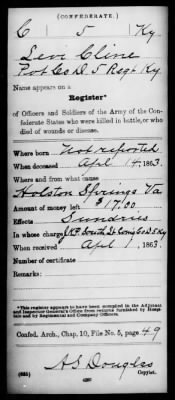 (CONFEDERATE.)
C 5 Ky
Levi Cline
Pvt Co D. 5 Regt Ky
Name appears on a
Register*
of Officers and Soldiers of the Army of the Con-
federate States who were killed in battle, or who
died of wounds or disease.
Where born Not reported
When deceased Apl 14, 1863.
Where and from what cause
Holston Springs Va
Amount of money left $17.00
Effects Sundries
In whose charge
When received Apl 1, 1863.
Number of certificate
Remarks:
*This register appears to have been compiled in the Adjutant
and Inspector General's Office from returns furnished by Hospi-
tals and by Regimental and Company Officers.
Confed. Arch., Chap. 10, File No. 5, page 49
A S Douglas
(635) Copyist.